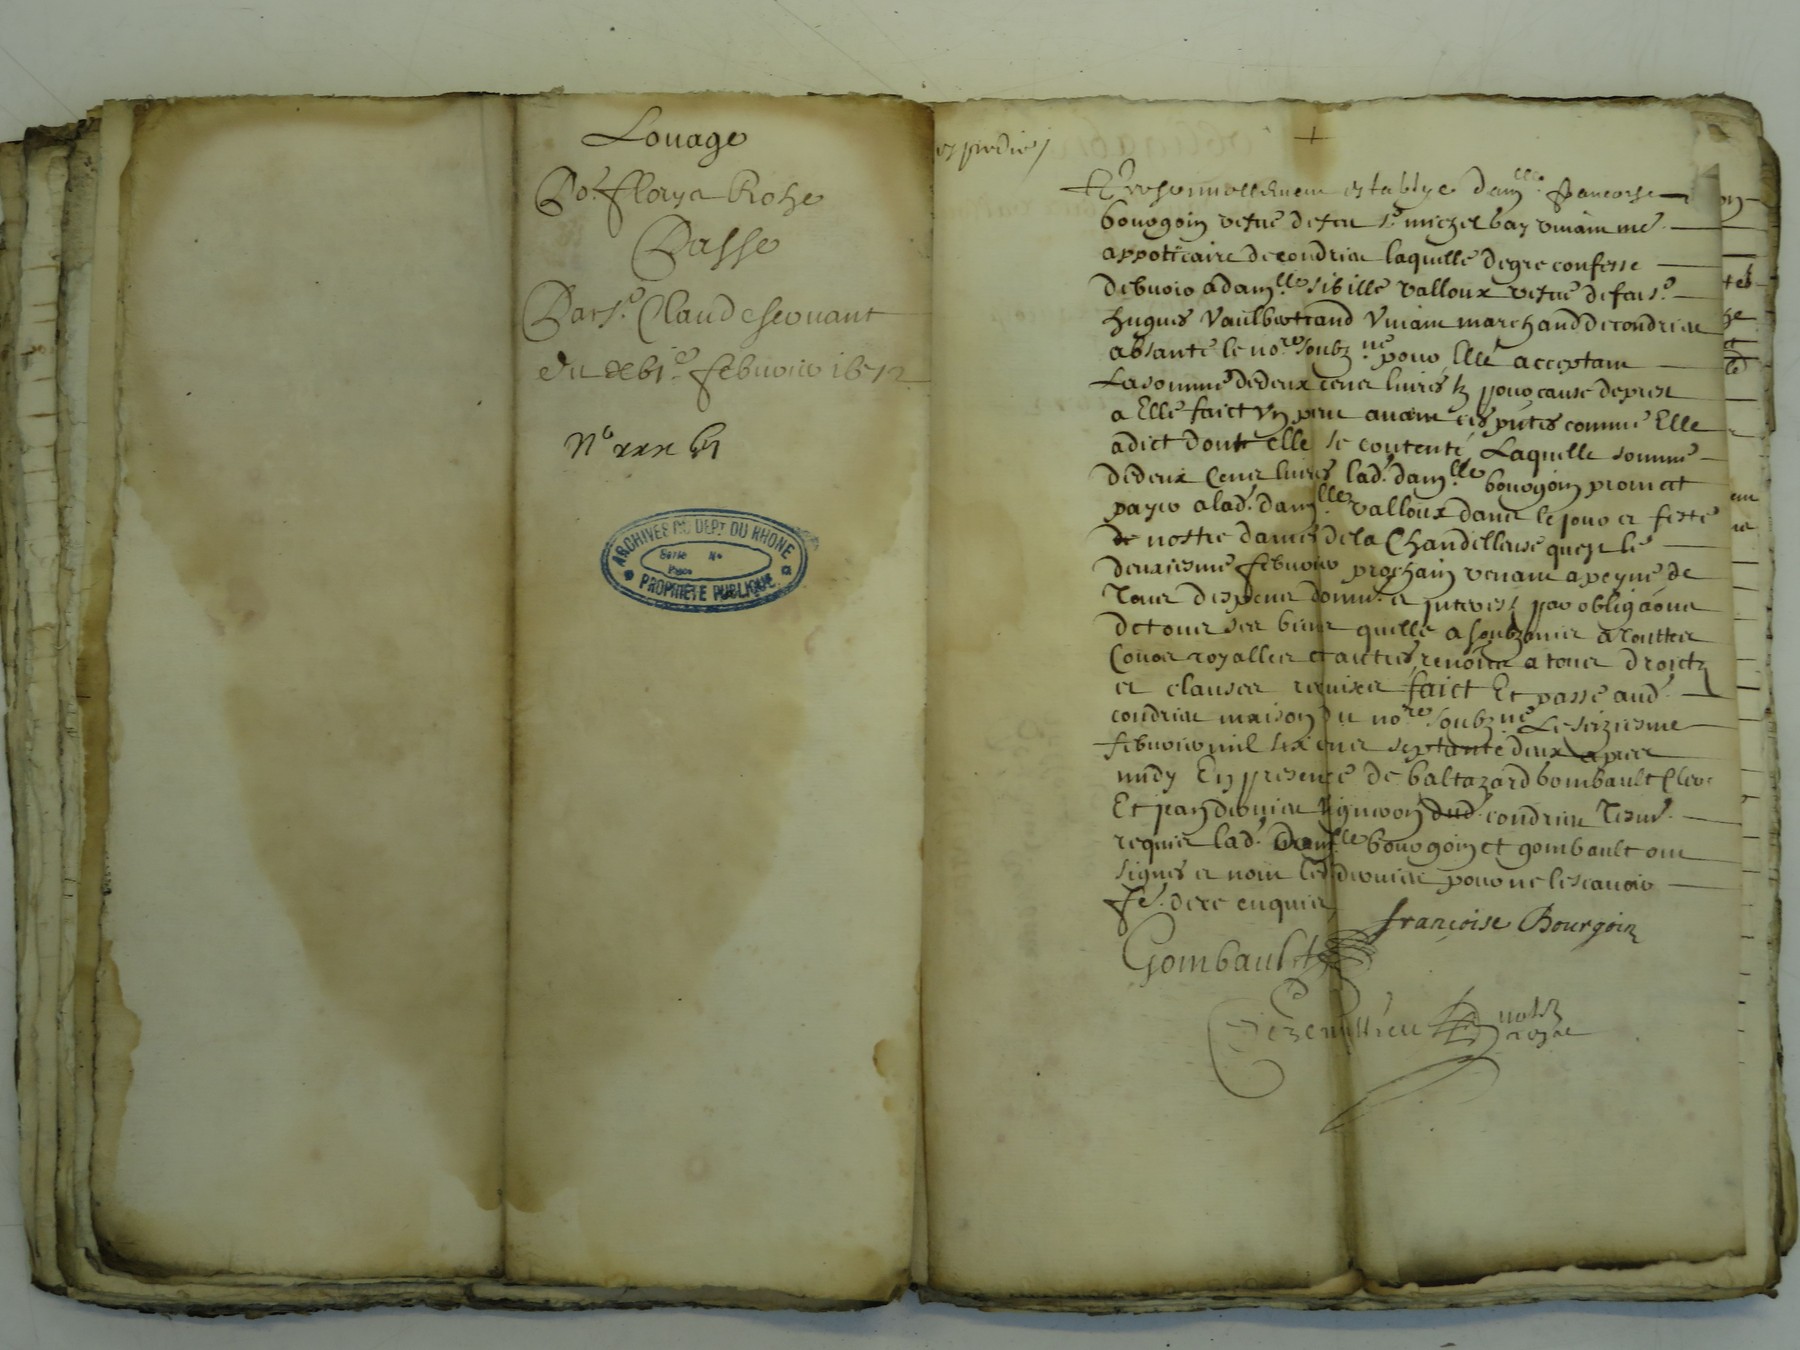 Louage
Po.r fleurye Rohe
Passe
Par s.r Claude servant
du xvi.e febvrier 1672
N.o xxx vi
ARCHIVES DU DEPT DU RHONE
Série No
Pièce
PROPRIÉTÉ PUBLIQUE
expedié
Personnellement establye dam.lle francoise
bourgoin vefue de feu s.r michel bay vivain me
appoticaire de condrieu laquelle de gre confesse
debvoir a dam.lle sibille valloux vefue de feu s.r
hugues Vaulbertrand vivant marchand de condrieu
absante le no.re soubz.ne pour Elle acceptant
La somme de deux cent livres tz pour cause de prest
a Elle faict un peu avant ces pntes comme Elle
a dict dont elle se contente Laquelle somme
de deux Cent livres lad. dam.lle bourgoin promet
payer a lad. dam.lle valloux dans le jour et feste
de nostre dame de la Chandelleuse quest le
deuxiesme febvrier prochain venant a peyne de
Tous despens domm. et interestz par obliga.on
de tous ses biens quelle a soubzmis a touttes
Cours royalles et autres renonce a tous droictz
et clauses requises faict Et passe aud.
condrieu maison du no.re soubz.ne Le seiziesme
febvrier mil six cent septante deux apres
midy En presence de baltazard gombault Clerc
Et jean drevieu vigneron dud. condrieu Tesm.
requis lad. dam.lle bourgoin et gombault ont
signes et non led. drevieu pour ne le scavoir
fe. de ce enquis
françoise Bourgoin
Gombault
notre
royal